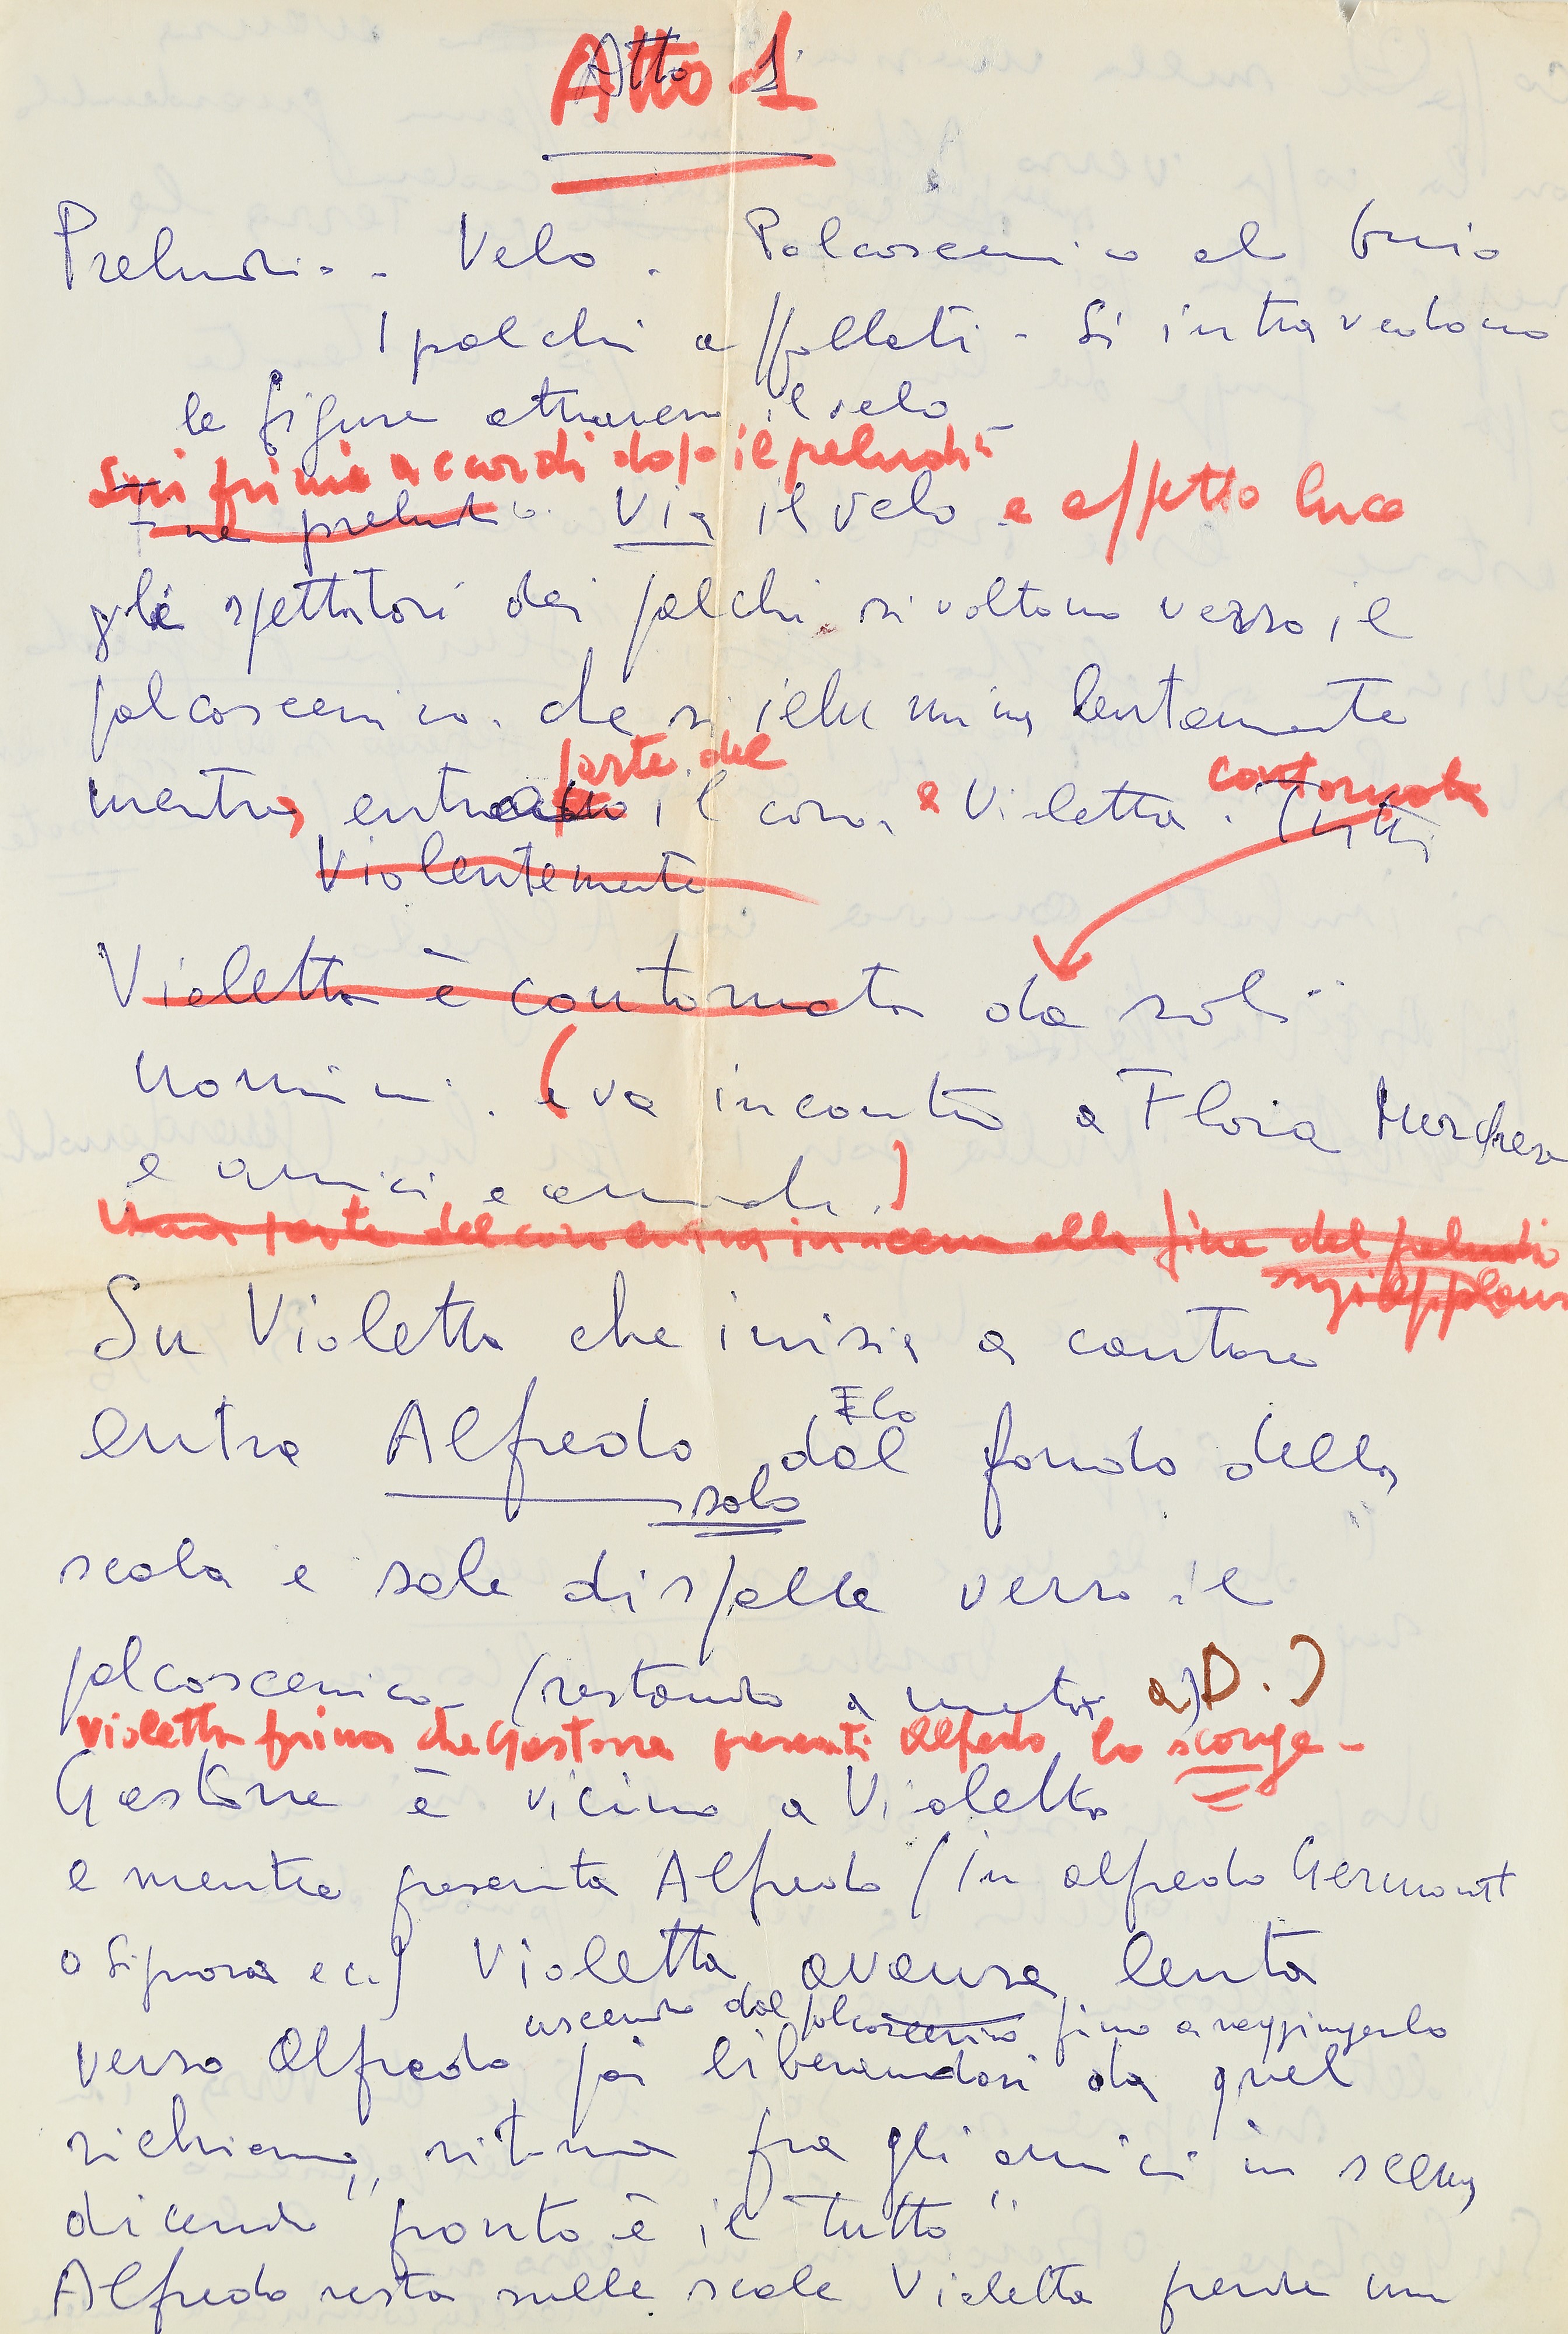 Atto 1
Preludio - Velo. Palcoscenico al buio
I palchi affollati - Si intravedono
le figure attraverso il velo
Sui primi accordi dopo il preludio
Fine preludio. Via il velo e effetto luce
gli spettatori dei palchi si voltano verso il
palcoscenico. che si illumina lentamente
parte del
mentre entra il coro, e Violetta. Tutti contornata
Violentemente
Violetta è contornata da soli
uomini. (e va incontro a Flora Marchese
e amici ecc.)
Una parte del coro entra in scena alla fine del preludio
sugli applausi
Su Violetta che inizia a cantare
entra Alfredo dal fondo della
solo
scala e sale di spalle verso il
palcoscenico (restando a metà a D.)
Violetta prima che Gastone presenti Alfredo lo scorge -
Gastone è vicino a Violetta
e mentre presenta Alfredo (in alfredo Germont
o Signora ecc) Violetta avanza lenta
uscendo dal palcoscenico fino a raggiungerlo
verso Alfredo poi liberandosi da quel
richiamo, ritorna fra gli amici in scena
dicendo "pronto è il tutto"
Alfredo resta sulle scale Violetta prende un